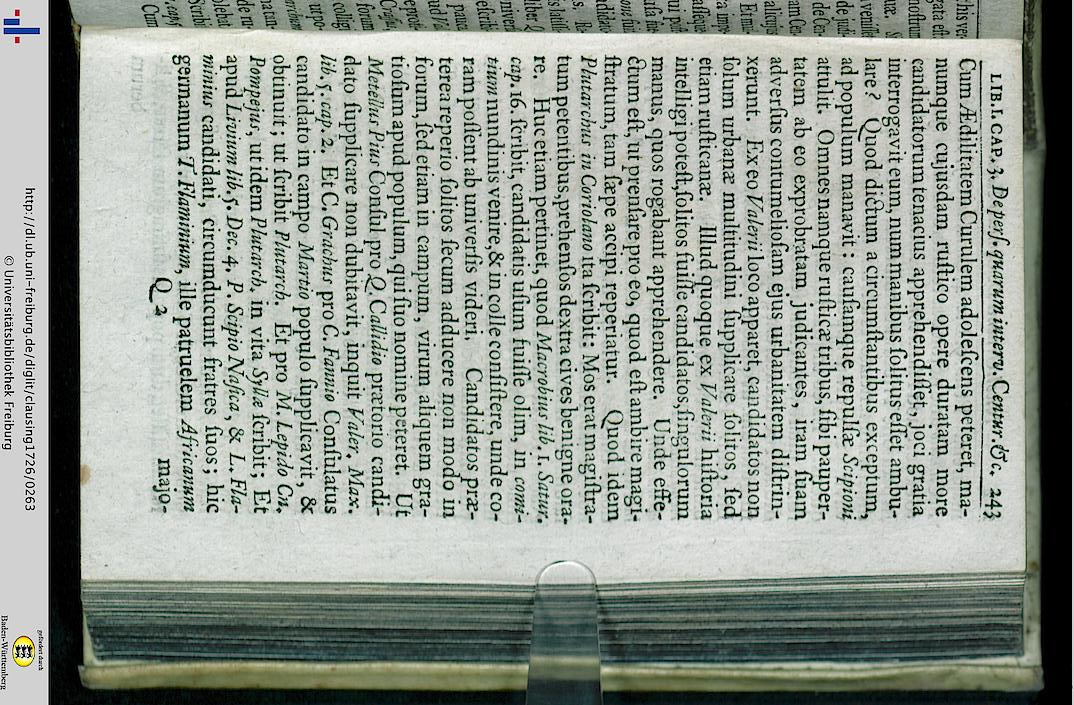 LIB. I. CAP. 3, De perſ. quarum interv. Centur. & c. 243
Cum Ædilitatem Curulem adoleſcens peteret, ma-
numque cujusdam ruſtico opere duratam more
candidatorum tenacius apprehendiſſet, joci gratia
interrogavit eum, num manibus ſolitus eſſet ambu-
lare? Quod dictum a circumſtantibus exceptum,
ad populum manavit: cauſamque repulſæ Scipioni
attulit. Omnes namque ruſticæ tribus, ſibi pauper-
tatem ab eo exprobratam judicantes, iram ſuam
adverſus contumelioſam ejus urbanitatem diſtrin-
xerunt. Ex eo Valerii loco apparet, candidatos non
ſolum urbanæ multitudini ſupplicare ſolitos, ſed
etiam ruſticanæ. Illud quoque ex Valerii hiſtoria
intelligi poteſt, ſolitos fuiſſe candidatos, ſingulorum
manus, quos rogabant apprehendere. Unde effe-
ctum eſt, ut prenſare pro eo, quod eſt ambire magi-
ſtratum, tam ſæpe accipi reperiatur. Quod idem
Plutarchus in Coriolano ita ſcribit: Mos erat magiſtra-
tum petentibus, prehenſos dextra cives benigne ora-
re. Huc etiam pertinet, quod Macrobius lib. I. Satur.
cap. 16. ſcribit, candidatis uſum fuiſſe olim, in comi-
tium nundinis venire, & in colle conſiſtere, unde co-
ram poſſent ab univerſis videri. Candidatos præ-
terea reperio ſolitos ſecum adducere non modo in
forum, ſed etiam in campum, virum aliquem gra-
tioſum apud populum, qui ſuo nomine peteret. Ut
Metellus Pius Conſul pro Q. Callidio prætorio candi-
dato ſupplicare non dubitavit, inquit Valer. Max.
lib. 5. cap. 2. Et C. Gracbus pro C. Fannio Conſulatus
candidato in campo Martio populo ſupplicavit, &
obtinuit; ut ſcribit Plutarch. Et pro M. Lepido Cn.
Pompejus, ut idem Plutarch. in vita Syllæ ſcribit; Et
apud Livium lib. 5. Dec. 4. P. Scipio Naſica, & L. Fla-
minius candidati, circumducunt fratres ſuos; hic
germanum T. Flaminium, ille patruelem Africanum
Q 2 majo-
http://dl.ub.uni-freiburg.de/diglit/clausing1726/0263
© Universitätsbibliothek Freiburg
gefördert durch
Baden-Württemberg